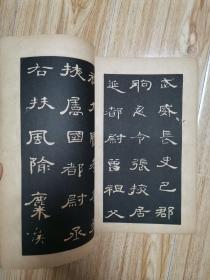 武威長史巴郡
朐忍令張掖居
延都尉曾祖父
掖屬國都尉丞
右扶風隃麋侯